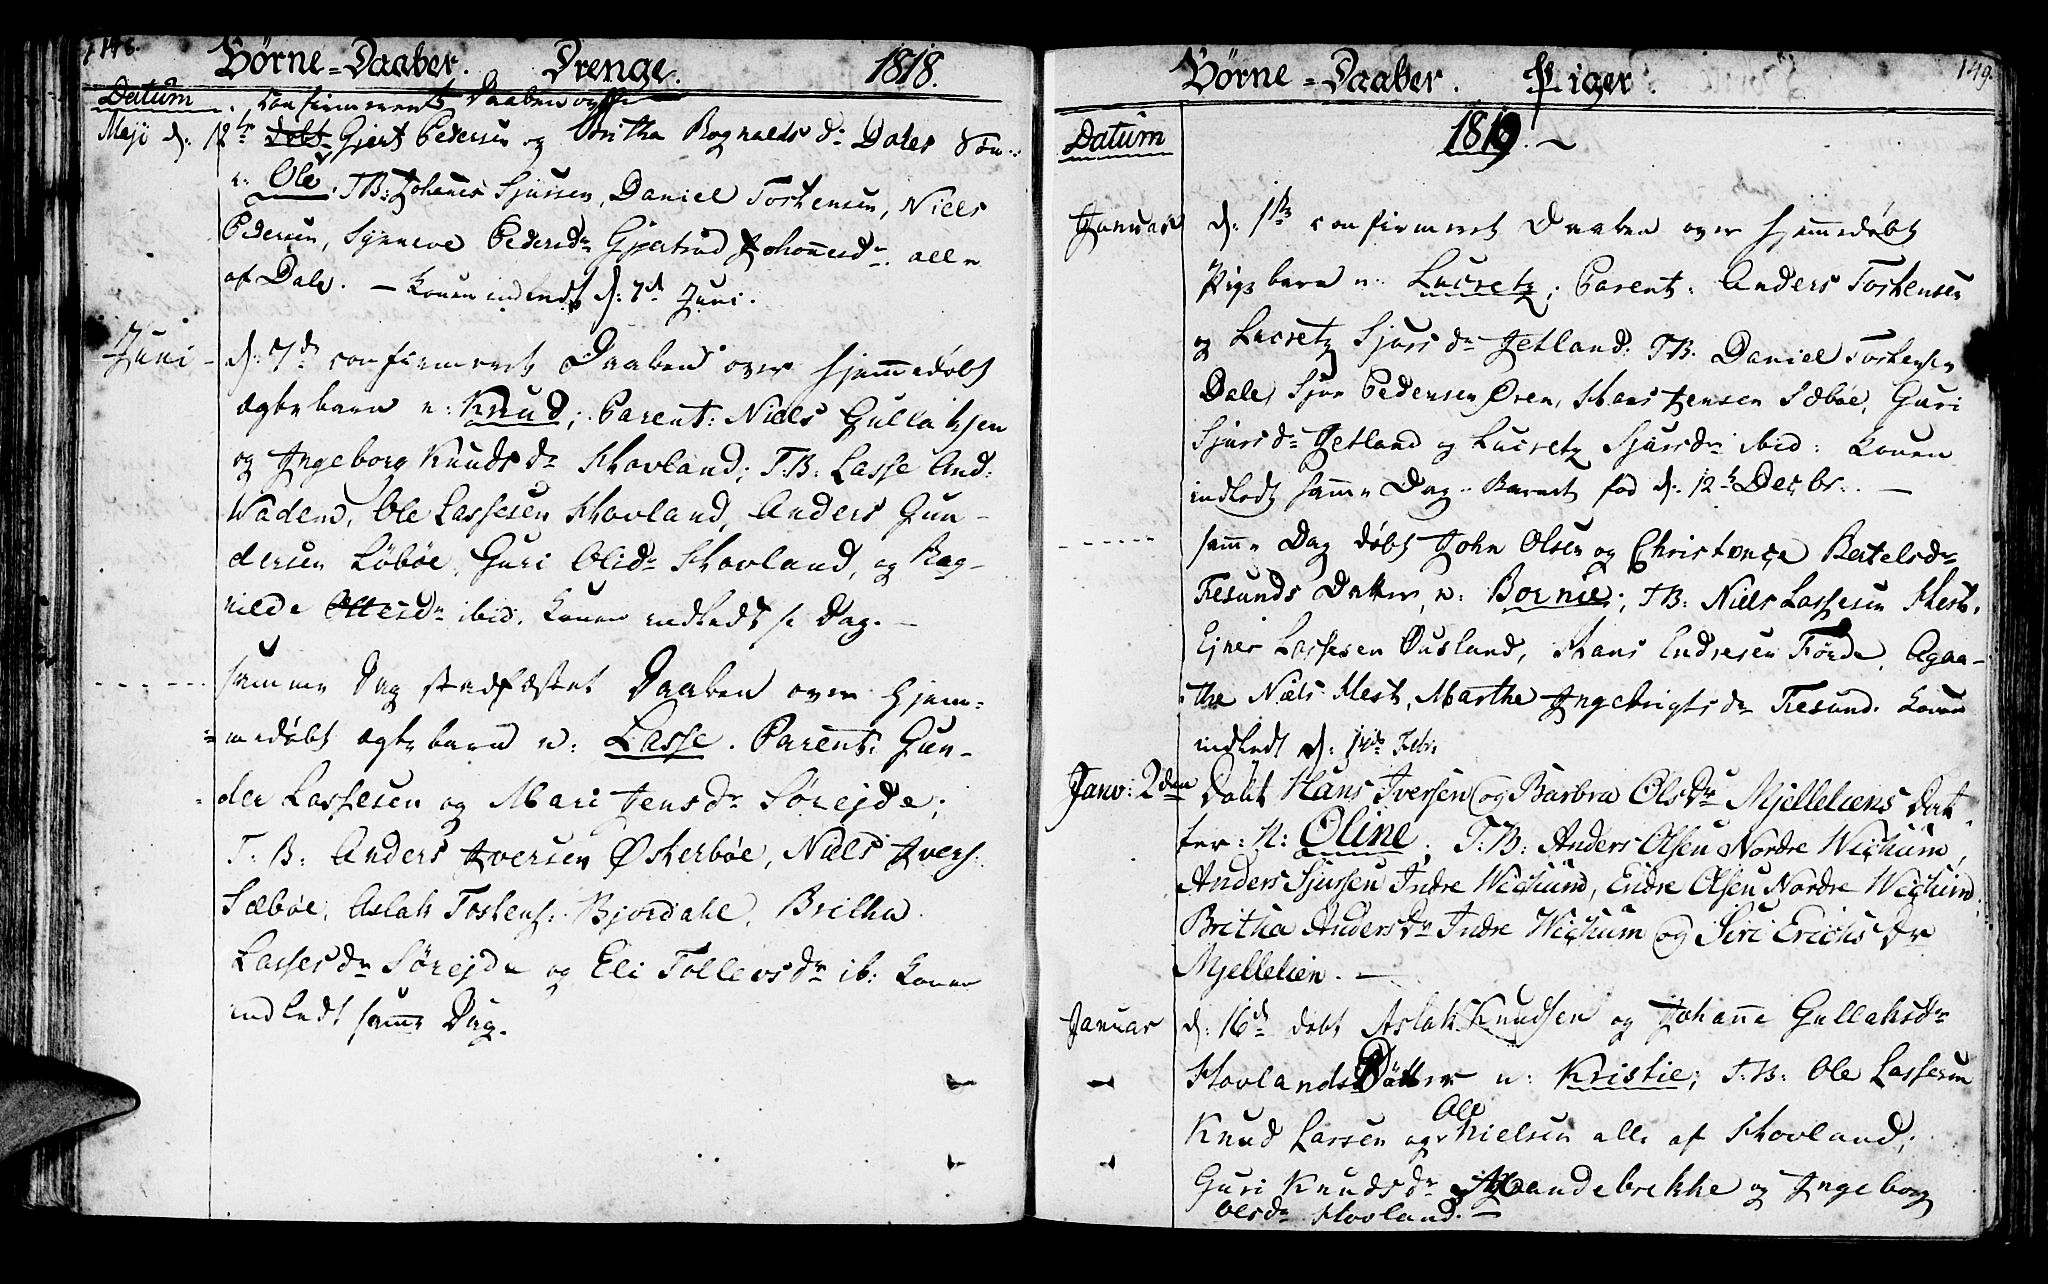 148.
Börne-Daaber. Drenge. 1818.
Datum
confirmeret Daaben over
Maji d: 12te döbt Gjert Pedersen og Britha Rognalds Dr Dales Søn
n: Ole, T.B: Johanes Sjursen, Daniel Torstensen, Niels
Pedersen, Synneve Pedersdr Gjertrud Johannesdr. alle
af Dale. — Konen indledt d: 7de Juni.
Juni d: 7de confirmeret Daaben over hjemedøbt
ægte barn n: Knud; Parent: Niels Gullaksen
og Ingeborg Knuds dr Hovland; T.B: Lasse And:
Wadem, Ole Lassesen Hovland, Anders Gun-
dersen Löbøe, Guri Olsdr Hovland, og Rag-
nilde Ottesdr ibid. Konen indledt s: Dag. —
samme Dag stadfæstet Daaben over hjem-
medøbt ægte barn n: Lasse. Parent: Gun-
der Lassesen og Mari Jensdr Sørejde;
T. B: Anders Iversen Østerbøe, Niels Ivers:
Sæbøe, Aslak Torstens: Bjordahl, Britha
Lassesdr Sørejde og Eli Tollevsdr ib: Konen
indledt samme Dag.
149.
Börne-Daaber. Piger.
Datum 1819.
Januar d: 1ste confirmeret Daaben over hjemmedøbt
Pige barn n: Lucretz; Parent: Anders Torstensen
og Lucretz Sjurs dr Jetland: T.B. Daniel Torstensen
Dale, Sjur Pedersen Øren, Hans Jensen Sæbøe, Guri
Sjursdr Jetland og Lucretz Sjursdr ibid: Konen
indledt samme Dag. Barnet fød d: 12te Decbr. —
samme Dag døbt John Olsen og Christense Bertelsdr
Tresunds Datter, n: Bornie; T.B: Niels Lassesen
Ejner Lassesen Øusland, Hans Endresen Førde, Agaa-
the Niels Marthe Ingebrigtsdr Tresund. Konen
indledt d: Febr.
Janv: 2den Døbt Hans Iversen og Barbra Ols Dr Mjellelien's Dat-
ter: N: Oline. T.B: Anders Olsen Nordre Wichum,
Anders Sjursen Indre Wichum, Endre Olsen Nordre Wichum,
Britha Anders Dr Indre Wichum og Siri Erichs Dr
Mjellelien. —
Januar d: 16de døbt Aslak Knudsen og Johanne Gullaksdr
Hovlands Dötter n: Kristie; T.B: Ole Lassesen
Knud Lassen og Ole Nielsen alle af Hovland;
Guri Knudsdr og Ingeborg
Olsdr Hovland. —